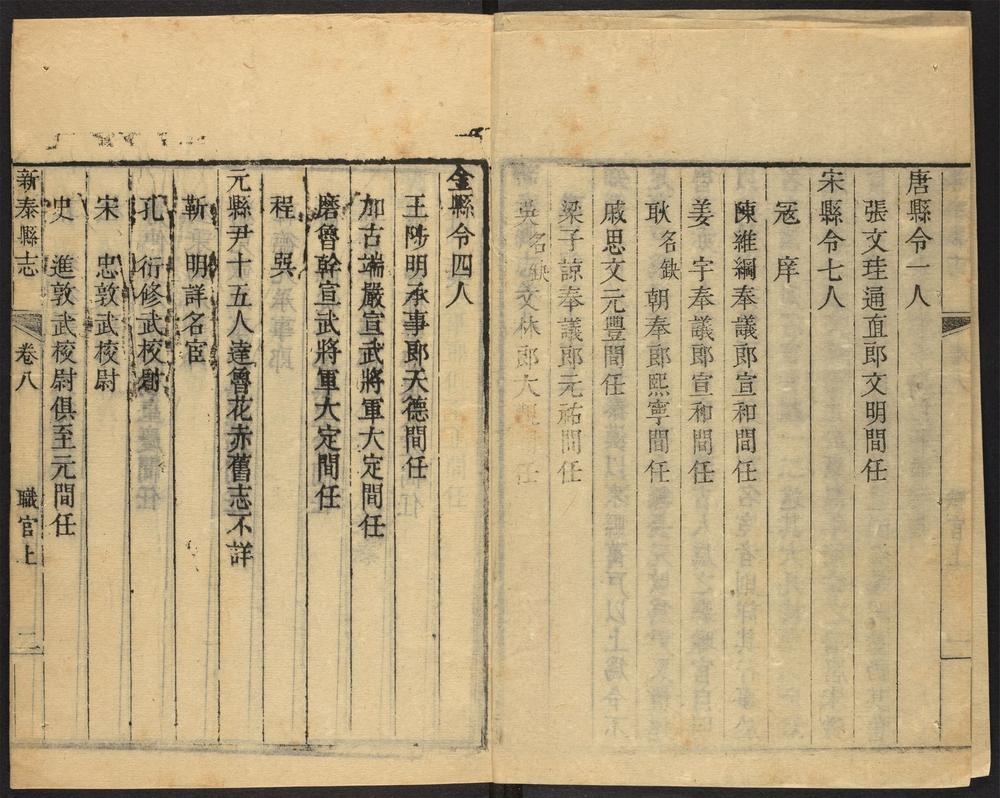 唐縣令一人
張文珪通直郎文明間任
宋縣令七人
冦庠
陳維綱奉議郎宣和間任
姜宇奉議郎宣和間任
耿名缺朝奉郎熙寧間任
戚思文元豐間任
梁子諒奉議郎元祐間任
英名缺文林郎大觀間任
金縣令四人
王陟明承事郎天德間任
加古端嚴宣武將軍大定間任
磨魯幹宣武將軍大定間任
程巺
元縣尹十五人達魯花赤舊志不詳
靳明詳名宦
孔衍修武校尉
宋忠敦武校尉
史進敦武校尉俱至元間任
新泰縣志 卷八 職官上 二